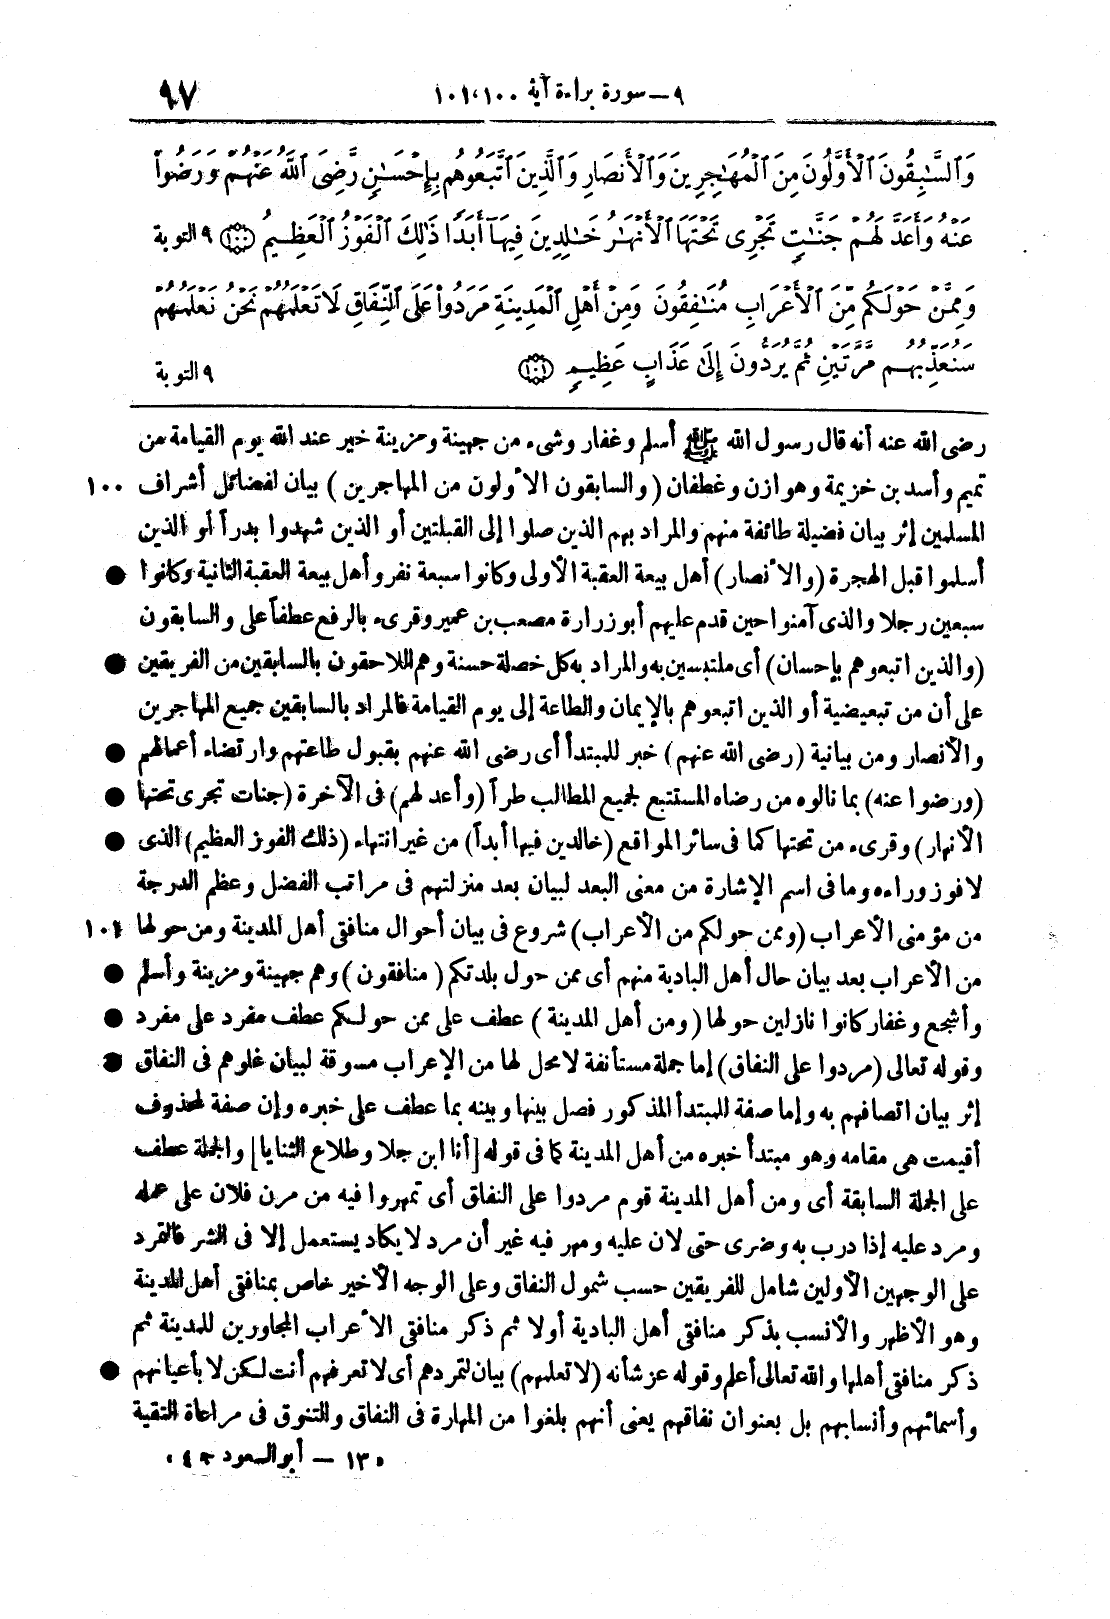 ٩ – سورة براءة آية ١٠٠، ١٠١
٩٧
وَٱلسَّٰبِقُونَ ٱلْأَوَّلُونَ مِنَ ٱلْمُهَٰجِرِينَ وَٱلْأَنصَارِ وَٱلَّذِينَ ٱتَّبَعُوهُم بِإِحْسَٰنٍ رَّضِىَ ٱللَّهُ عَنْهُمْ وَرَضُوا۟
عَنْهُ وَأَعَدَّ لَهُمْ جَنَّٰتٍ تَجْرِى تَحْتَهَا ٱلْأَنْهَٰرُ خَٰلِدِينَ فِيهَآ أَبَدًا ذَٰلِكَ ٱلْفَوْزُ ٱلْعَظِيمُ ١٠٠ ٩ التوبة
وَمِمَّنْ حَوْلَكُم مِّنَ ٱلْأَعْرَابِ مُنَٰفِقُونَ وَمِنْ أَهْلِ ٱلْمَدِينَةِ مَرَدُوا۟ عَلَى ٱلنِّفَاقِ لَا تَعْلَمُهُمْ نَحْنُ نَعْلَمُهُمْ
سَنُعَذِّبُهُم مَّرَّتَيْنِ ثُمَّ يُرَدُّونَ إِلَىٰ عَذَابٍ عَظِيمٍ ١٠١ ٩ التوبة
رضى الله عنه أنه قال رسول الله ﷺ أسلم وغفار وشىء من جهينة ومزينة خير عند الله يوم القيامة من
تميم وأسد بن خزيمة وهوازن وغطفان (والسابقون الأولون من المهاجرين) بيان لفضائل أشراف ١٠٠
المسلمين إثر بيان فضيلة طائفة منهم والمراد بهم الذين صلوا إلى القبلتين أو الذين شهدوا بدراً أو الذين
أسلموا قبل الهجرة (والأنصار) أهل بيعة العقبة الأولى وكانوا سبعة نفر وأهل بيعة العقبة الثانية وكانوا ●
سبعين رجلا والذى آمنوا حين قدم عليهم أبو زرارة مصعب بن عمير وقرىء بالرفع عطفاً على والسابقون
(والذين اتبعوهم بإحسان) أى ملتبسين به والمراد به كل خصلة حسنة وهم اللاحقون بالسابقين من الفريقين ●
على أن من تبعيضية أو الذين اتبعوهم بالإيمان والطاعة إلى يوم القيامة فالمراد بالسابقين جميع المهاجرين
والأنصار ومن بيانية (رضى الله عنهم) خبر للمبتدأ أى رضى الله عنهم بقبول طاعتهم وارتضاء أعمالهم ●
(ورضوا عنه) بما نالوه من رضاه المستتبع لجميع المطالب طراً (وأعد لهم) فى الآخرة (جنات تجرى تحتها ●
الأنهار) وقرىء من تحتها كما فى سائر المواقع (خالدين فيها أبداً) من غير انتهاء (ذلك الفوز العظيم) الذى ●
لا فوز وراءه وما فى اسم الإشارة من معنى البعد لبيان بعد منزلتهم فى مراتب الفضل وعظم الدرجة
من مؤمنى الأعراب (وممن حولكم من الأعراب) شروع فى بيان أحوال منافقى أهل المدينة ومن حولها ١٠١
من الأعراب بعد بيان حال أهل البادية منهم أى ممن حول بلدتكم (منافقون) وهم جهينة ومزينة وأسلم ●
وأشجع وغفار كانوا نازلين حولها (ومن أهل المدينة) عطف على ممن حولكم عطف مفرد على مفرد ●
وقوله تعالى (مردوا على النفاق) إما جملة مستأنفة لا محل لها من الإعراب مسوقة لبيان غلوهم فى النفاق ●
إثر بيان اتصافهم به وإما صفة للمبتدأ المذكور فصل بينها وبينه بما عطف على خبره وإن صفة لمحذوف
أقيمت هى مقامه وهو مبتدأ خبره من أهل المدينة كما فى قوله [أنا ابن جلا وطلاع الثنايا] والجملة عطف
على الجملة السابقة أى ومن أهل المدينة قوم مردوا على النفاق أى تمهروا فيه من مرن فلان على عمله
ومرد عليه إذا درب به وضرى حتى لان عليه ومهر فيه غير أن مرد لا يكاد يستعمل إلا فى الشر فالتمرد
على الوجهين الأولين شامل للفريقين حسب شمول النفاق وعلى الوجه الأخير خاص بمنافقى أهل المدينة
وهو الأظهر والأنسب بذكر منافقى أهل البادية أولا ثم ذكر منافقى الأعراب المجاورين للمدينة ثم
ذكر منافقى أهلها والله تعالى أعلم وقوله عز شأنه (لا تعلمهم) بيان لتمردهم أى لا تعرفهم أنت لكن لا بأعيانهم ●
وأسمائهم وأنسابهم بل بعنوان نفاقهم يعنى أنهم بلغوا من المهارة فى النفاق والتنوق فى مراعاة التقية
«١٣ – أبو السعود ج ٤»